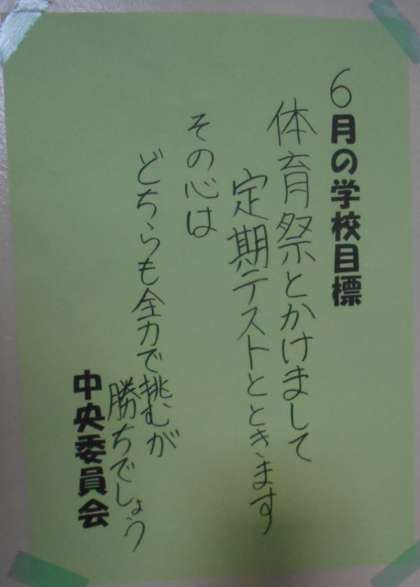 6月の学校目標
体育祭とかけまして
定期テストとときます
その心は
どちらも全力で挑むが
勝ちでしょう
中央委員会